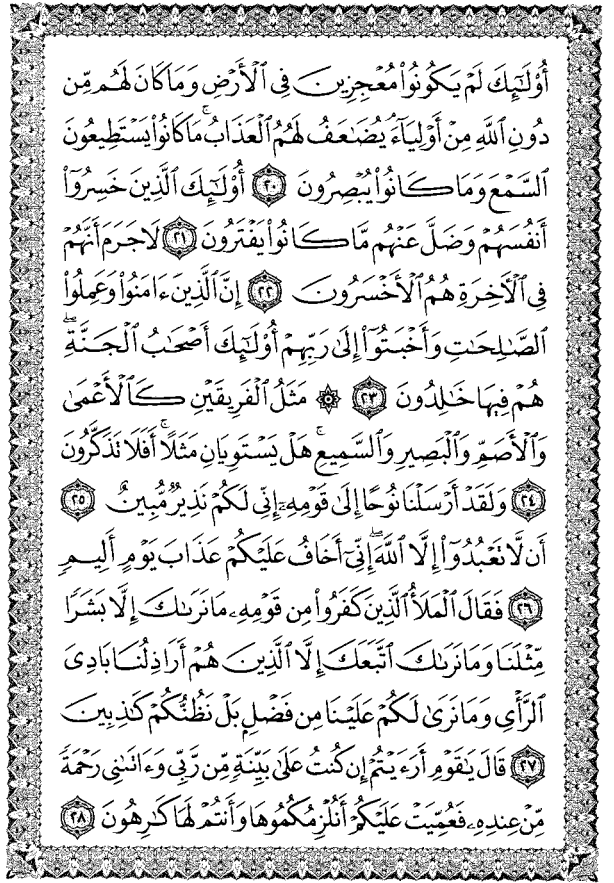 أُوْلَٰٓئِكَ لَمْ يَكُونُوا۟ مُعْجِزِينَ فِى ٱلْأَرْضِ وَمَا كَانَ لَهُم مِّن
دُونِ ٱللَّهِ مِنْ أَوْلِيَآءَ ۘ يُضَٰعَفُ لَهُمُ ٱلْعَذَابُ ۚ مَا كَانُوا۟ يَسْتَطِيعُونَ
ٱلسَّمْعَ وَمَا كَانُوا۟ يُبْصِرُونَ ٢٠ أُوْلَٰٓئِكَ ٱلَّذِينَ خَسِرُوٓا۟
أَنفُسَهُمْ وَضَلَّ عَنْهُم مَّا كَانُوا۟ يَفْتَرُونَ ٢١ لَا جَرَمَ أَنَّهُمْ
فِى ٱلْءَاخِرَةِ هُمُ ٱلْأَخْسَرُونَ ٢٢ إِنَّ ٱلَّذِينَ ءَامَنُوا۟ وَعَمِلُوا۟
ٱلصَّٰلِحَٰتِ وَأَخْبَتُوٓا۟ إِلَىٰ رَبِّهِمْ أُوْلَٰٓئِكَ أَصْحَٰبُ ٱلْجَنَّةِ ۖ
هُمْ فِيهَا خَٰلِدُونَ ٢٣ ۞ مَثَلُ ٱلْفَرِيقَيْنِ كَٱلْأَعْمَىٰ
وَٱلْأَصَمِّ وَٱلْبَصِيرِ وَٱلسَّمِيعِ ۚ هَلْ يَسْتَوِيَانِ مَثَلًا ۚ أَفَلَا تَذَكَّرُونَ
٢٤ وَلَقَدْ أَرْسَلْنَا نُوحًا إِلَىٰ قَوْمِهِۦٓ إِنِّى لَكُمْ نَذِيرٌ مُّبِينٌ ٢٥
أَن لَّا تَعْبُدُوٓا۟ إِلَّا ٱللَّهَ ۖ إِنِّىٓ أَخَافُ عَلَيْكُمْ عَذَابَ يَوْمٍ أَلِيمٍ
٢٦ فَقَالَ ٱلْمَلَأُ ٱلَّذِينَ كَفَرُوا۟ مِن قَوْمِهِۦ مَا نَرَىٰكَ إِلَّا بَشَرًا
مِّثْلَنَا وَمَا نَرَىٰكَ ٱتَّبَعَكَ إِلَّا ٱلَّذِينَ هُمْ أَرَاذِلُنَا بَادِىَ
ٱلرَّأْىِ وَمَا نَرَىٰ لَكُمْ عَلَيْنَا مِن فَضْلٍۭ بَلْ نَظُنُّكُمْ كَٰذِبِينَ
٢٧ قَالَ يَٰقَوْمِ أَرَءَيْتُمْ إِن كُنتُ عَلَىٰ بَيِّنَةٍ مِّن رَّبِّى وَءَاتَىٰنِى رَحْمَةً
مِّنْ عِندِهِۦ فَعُمِّيَتْ عَلَيْكُمْ أَنُلْزِمُكُمُوهَا وَأَنتُمْ لَهَا كَٰرِهُونَ ٢٨